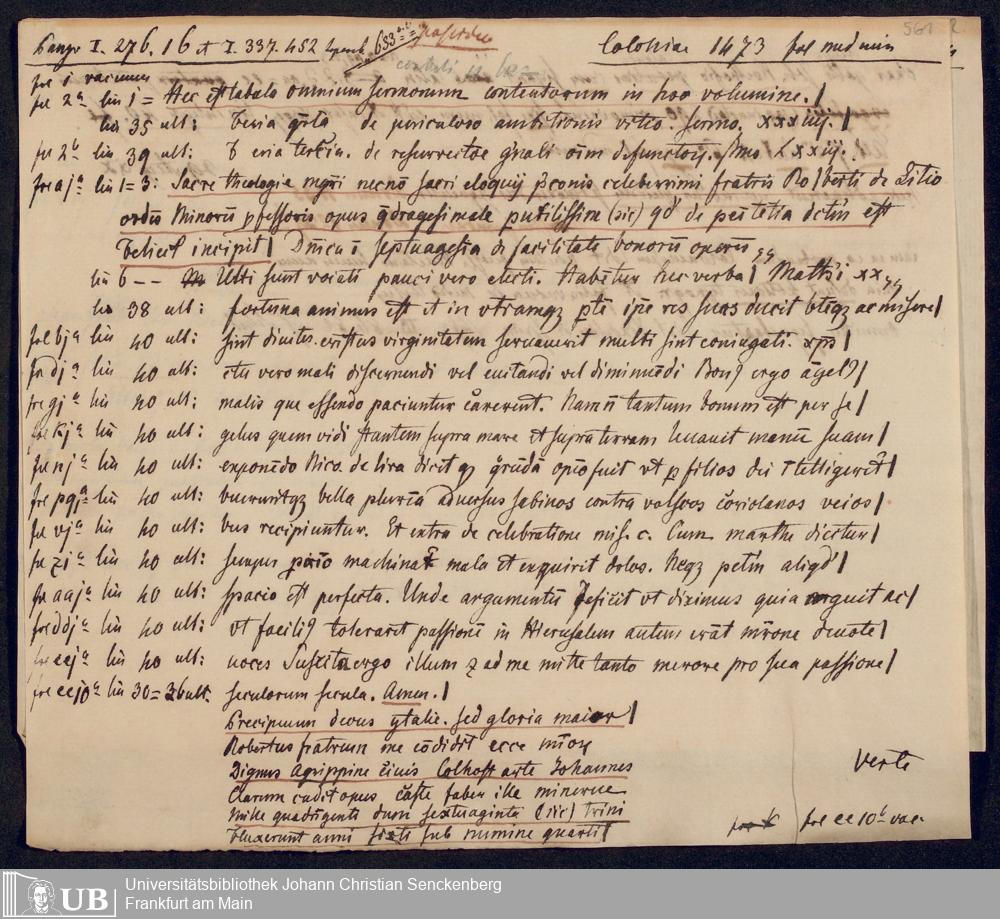 Panzer I. 276. 16 et I. 337. 452
Coloniae 1473 fol
561
fol 1 vacuum
fol 2ª lin 1 = Hec est tabula omnium sermonum contentorum in hoc volumine. |
lin 35 ult: Feria de periculoso ambitionis vitio. Sermo. xxxiiij. |
fol 2ᵇ lin 39 ult: Feria de defunctorum
fol aj ª lin 1=3: Sacre theologie mgri necnō sacri eloquij celeberrimi fratris Ro|berti de Litio
ordīs Minorū pfessoris opus qdragesimale putilissim (sic) qd' de penitētia dctm est
Felicit' incipit | Dnica ī septuagesīa de facilitate bonorū operū
lin 6 -- Ulti sunt vocati pauci vero electi. Habētur hec verba | Matthi xx
lin 38 ult: fortuna animus est et in vtramqz ptē ipe res suas ducit btēqz ac misere |
fol bj ª lin 40 ult: sint diuites. cristus virginitatem seruauerit multi sint coniugati. xps |
fol dj ª lin 40 ult: ctu vero mali discernendi vel euitandi vel diminuēdi Bon9 ergo āgel9 |
fol gj ª lin 40 ult: malis que essendo paciuntur carerent. Nam tantum bonum est per se |
fol kj ª lin 40 ult: gelus quem vidi stantem supra mare et supra terram leuauit manū suam |
fol nj ª lin 40 ult: exponēdo Nico. de lira dicit qz fuit vt p filios dei ītelligerēt' |
fol pj ª lin 40 ult: bella plurīa aduersus sabinos contra volscos coriolanos veios |
fol vj ª lin 40 ult: bus recipiuntur. Et extra de celebratione mis. c. Cum marthe dicitur |
fol zj ª lin 40 ult: semper machinat mala et exquirit dolos. Neqz petin aliqd' |
fol aaj ª lin 40 ult: spacio est perfecta. Unde argumentū deficit vt diximus quia arguit ac |
fol ddj ª lin 40 ult: vt facili9 toleraret passionē in Hierusalem autem erāt deuote |
fol eej ª lin 40 ult: uoces Suscita ergo illum z ad me mitte tanto merore pro sua passione |
fol ee10 ª lin 30=36 ult. seculorum secula. Amen. |
Precipuum decus ytalie. sed gloria maior |
Robertus fratrum me cōdidit ecce
Dignus Agrippine ciuis Colhoff arte Johannes
Clarum cudit opus caste faber ille minerue
Mille quadrigenti duon sextuaginta (sic) trini
Fluxerunt anni sixti sub numine quarti |
Verte
fol ee 10ᵇ vac.
UB
Universitätsbibliothek Johann Christian Senckenberg
Frankfurt am Main